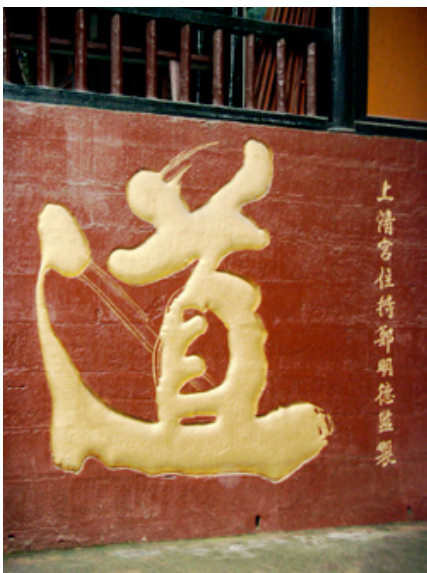 道
上清宫住持鄭明德監製